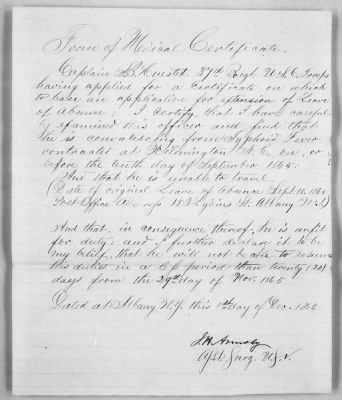 Form of Medical Certificate.
Captain B. Huested 37th Regt U.S.C. Troops
having applied for a Certificate on which
to base an application for extension of Leave
of Absence; I certify, that I have carefully
examined this officer and find that
he is convalescing from Typhoid Fever
contracted at Wilmington N.C. on or
before the tenth day of September 1865.
And that he is unable to travel.
(Date of original Leave of Absence Sept. 10. 1865
Post Office Address 183 Lydius St. Albany N.Y.)
And that, in consequence thereof, he is unfit
for duty; and I further declare it to be
my belief, that he will not be able to resume
his duties in a less period than twenty (20)
days from the 29th day of Nov. 1865
Dated at Albany N.Y. this 1st day of Dec. 1865
J.H. Armsby
Asst Surg. U.S.V.